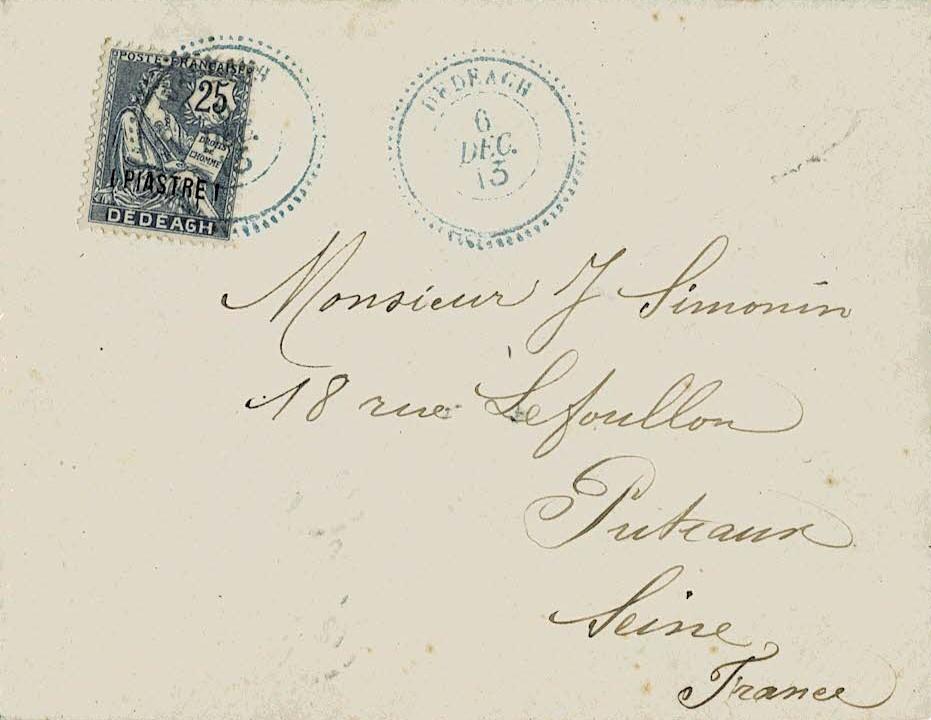 POSTE FRANÇAISE
25
DROITS
DE
L'HOMME
1 PIASTRE 1
DEDEAGH
DEDEAGH
6
DEC.
13
Monsieur J Simonin
18 rue Lefoullon
Puteaux
Seine
France